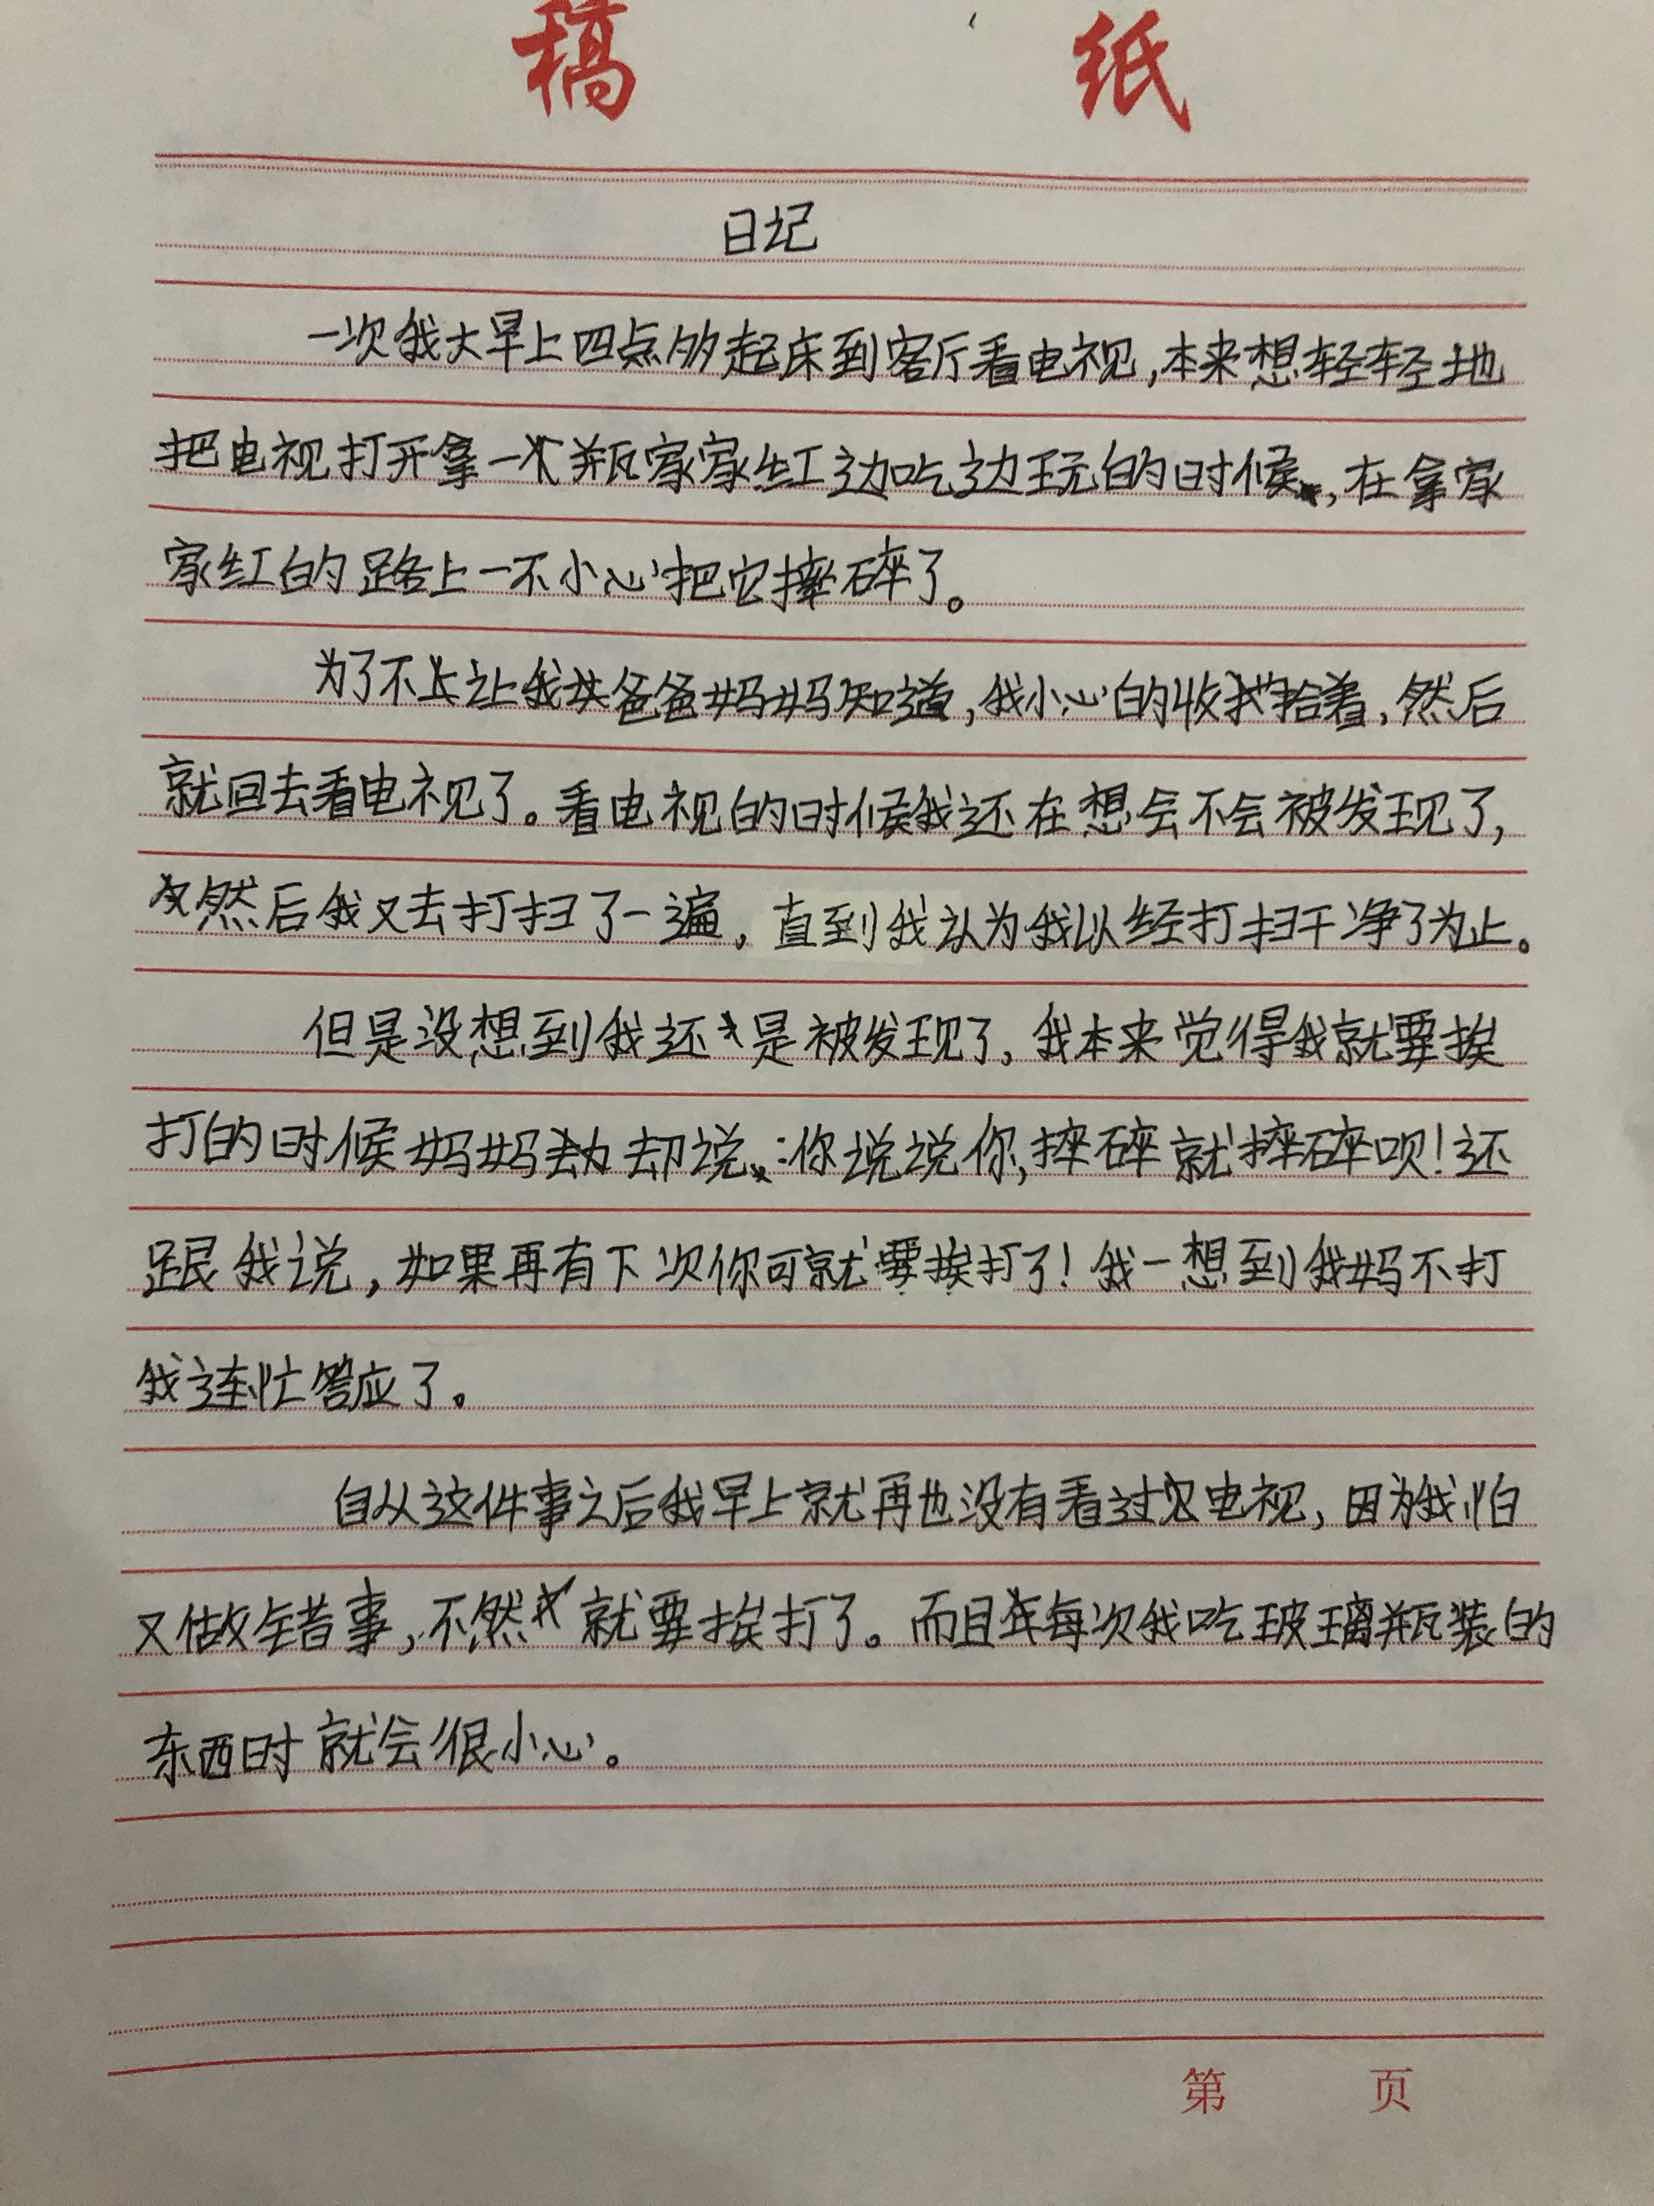 稿 纸
日记
一次我大早上四点多起床到客厅看电视,本来想轻轻地
把电视打开拿一瓶家家红边吃边玩的时候,在拿家
家红的路上一不小心把它摔碎了。
为了不让我爸爸妈妈知道,我小心的收拾着,然后
就回去看电视了。看电视的时候我还在想会不会被发现了,
然后我又去打扫了一遍,直到我认为我以经打扫干净了为止。
但是没想到我还是被发现了,我本来觉得我就要挨
打的时候妈妈却说:你说说你,摔碎就摔碎呗!还
跟我说,如果再有下次你可就要挨打了!我一想到我妈不打
我连忙答应了。
自从这件事之后我早上就再也没有看过电视,因为我怕
又做错事,不然就要挨打了。而且每次我吃玻璃瓶装的
东西时就会很小心。
第 页